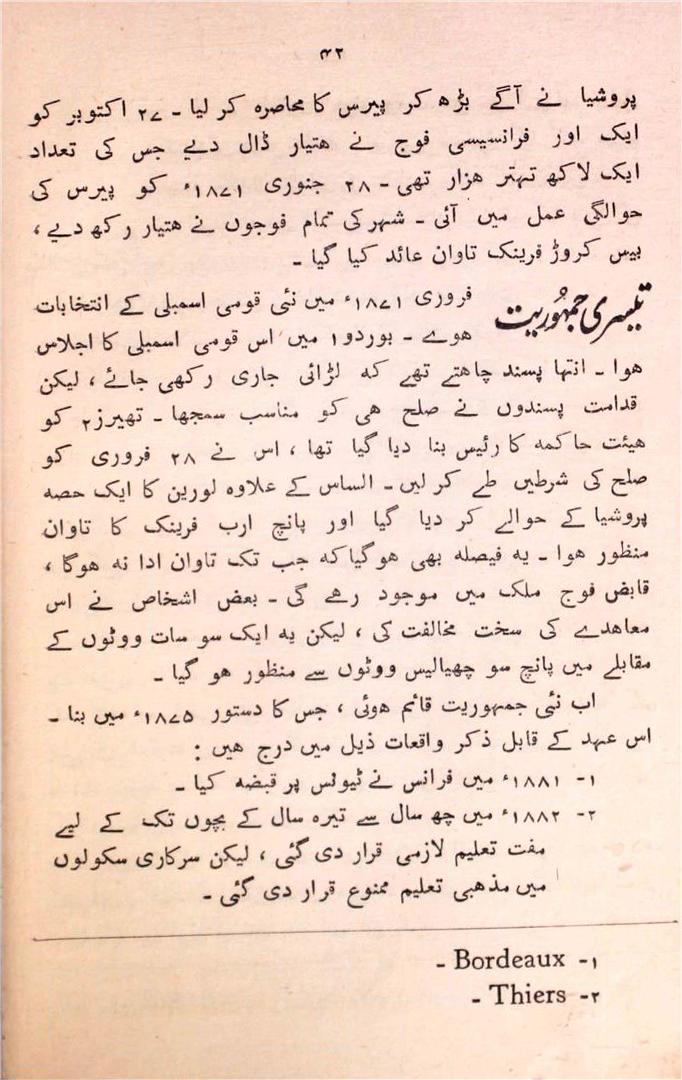 ۴۲
پروشیا نے آگے بڑھ کر پیرس کا محاصرہ کر لیا ـ ۲۷ اکتوبر کو
ایک اور فرانسیسی فوج نے ہتیار ڈال دیے جس کی تعداد
ایک لاکھ تہتر ہزار تھی ـ ۲۸ جنوری ۱۸۷۱ء کو پیرس کی
حوالگی عمل میں آئی ـ شہر کی تمام فوجوں نے ہتیار رکھ دیے ،
بیس کروڑ فرینک تاوان عائد کیا گیا ـ
تیسری جمہوریت
فروری ۱۸۷۱ء میں نئی قومی اسمبلی کے انتخابات
ہوے ـ بوردو۱ میں اس قومی اسمبلی کا اجلاس
ہوا ـ انتہا پسند چاہتے تھے کہ لڑائی جاری رکھی جائے ، لیکن
قدامت پسندوں نے صلح ہی کو مناسب سمجھا ـ تھیرز۲ کو
ہیئت حاکمہ کا رئیس بنا دیا گیا تھا ، اس نے ۲۸ فروری کو
صلح کی شرطیں طے کر لیں ـ الساس کے علاوہ لورین کا ایک حصہ
پروشیا کے حوالے کر دیا گیا اور پانچ ارب فرینک کا تاوان
منظور ہوا ـ یہ فیصلہ بھی ہوگیا کہ جب تک تاوان ادا نہ ہوگا ،
قابض فوج ملک میں موجود رہے گی ـ بعض اشخاص نے اس
معاہدے کی سخت مخالفت کی ، لیکن یہ ایک سو سات ووٹوں کے
مقابلے میں پانچ سو چھیالیس ووٹوں سے منظور ہو گیا ـ
اب نئی جمہوریت قائم ہوئی ، جس کا دستور ۱۸۷۵ء میں بنا ـ
اس عہد کے قابل ذکر واقعات ذیل میں درج ہیں :
۱- ۱۸۸۱ء میں فرانس نے ٹیونس پر قبضہ کیا ـ
۲- ۱۸۸۲ء میں چھ سال سے تیرہ سال کے بچوں تک کے لیے
مفت تعلیم لازمی قرار دی گئی ، لیکن سرکاری سکولوں
میں مذہبی تعلیم ممنوع قرار دی گئی ـ
۱- Bordeaux ـ
۲- Thiers ـ